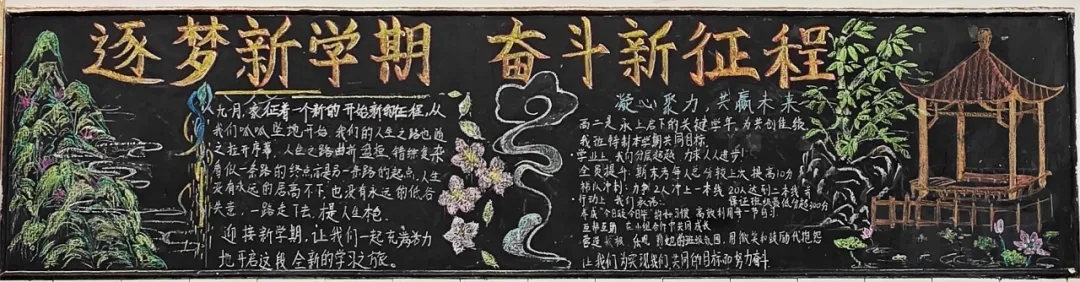 逐梦新学期 奋斗新征程
九月,象征着一个新的开始新的征程,从
我们呱呱坠地开始 我们的人生之路也随
之拉开序幕,人生之路曲折盘桓,错综复杂
看似一条路的终点亦是另一条路的起点,人生
没有永远的居高不下,也没有永远的低谷
失意,一路走下去,才是人生本色
迎接新学期,让我们一起充满努力
地开启这段全新的学习之旅。
凝心聚力,共赢未来
高二是承上启下的关键学年,为共创佳级
我班特制本学期共同目标
·学业上 我们分层超越 力求人人进步!
全员提升:期末考每人总分较上次提高10分
梯队冲刺:力争2人冲上一本线 20人达到二本线
保证班级最低分超300分
·行动上 我们承诺:
养成"今日事今日毕"的好习惯 高效利用每一节自习
互帮互助 在小组合作中共同成长
营造积极 乐观 的班级氛围,用微笑和鼓励代抱怨
让我们为实现我们共同的目标而努力奋斗